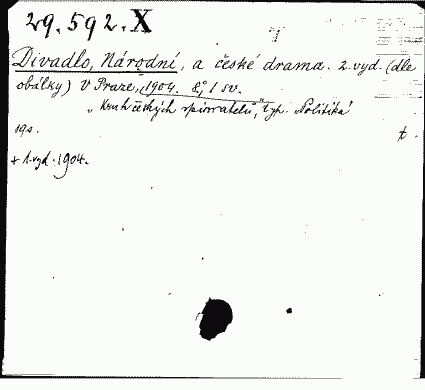 29.592.X
Divadlo, Národní, a české drama. 2. vyd. (dle
obálky) V Praze, 1904. 8°, 1 sv.
„Kruh českých spisovatelů“, typ. „Politika“
sgs. t.
+ 1. vyd. 1904.